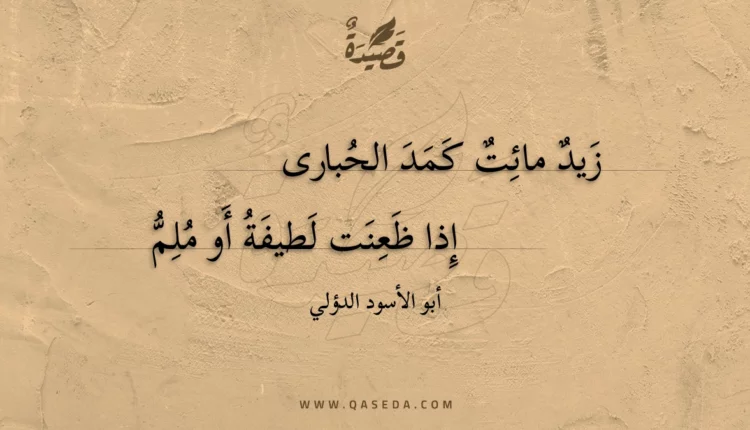 قَصِيْدَةٌ
زَيدٌ مائِتٌ كَمَدَ الحُبارى
إِذا ظَعِنَت لَطيفَةُ أَو مُلِمُّ
أبو الأسود الدؤلي
WWW.QASEDA.COM